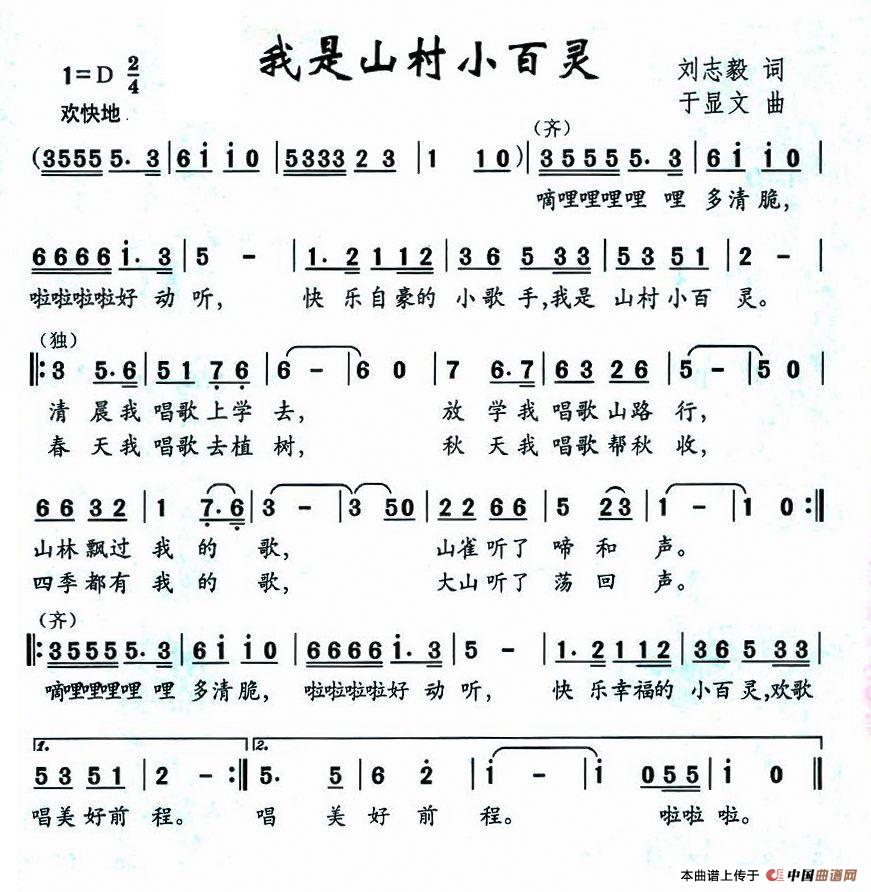 我是山村小百灵
1=D 2/4
刘志毅 词
欢快地
于显文 曲
(齐)
(3555 5. 3 | 6 i i 0 | 5333 2 3 | 1 1 0) | 3555 5. 3 | 6 i i 0 |
嘀哩哩哩哩 哩 多清脆,
6666 i. 3 | 5 - | 1. 2 1 12 | 3 6 5 33 | 5 3 5 1 | 2 - |
啦啦啦啦好 动 听, 快 乐自豪的 小歌手,我是 山村小百 灵。
(独)
|: 3 5. 6 | 5 1 7 6 | 6 - | 6 0 | 7 6. 7 | 6 3 2 6 | 5 - | 5 0 |
清 晨我 唱歌上学 去, 放 学我 唱歌山路 行,
春 天我 唱歌去植 树, 秋 天我 唱歌帮秋 收,
6 6 3 2 | 1 7. 6 | 3 - | 3 50 | 2 2 6 6 | 5 2 3 | 1 - | 1 0 :|
山林飘过 我 的 歌, 山雀听了 啼 和 声。
四季都有 我 的 歌, 大山听了 荡 回 声。
(齐)
|: 3555 5. 3 | 6 i i 0 | 6666 i. 3 | 5 - | 1. 2 1 12 | 3 6 5 33 |
嘀哩哩哩哩 哩 多清脆, 啦啦啦啦好 动 听, 快 乐幸福的 小百灵,欢歌
1. 2.
5 3 5 1 | 2 - :| 5. 5 | 6 2 | i - | i 0 55 | i 0 ||
唱美好前 程。 唱 美 好 前 程。 啦啦 啦。
本曲谱上传于 中国曲谱网